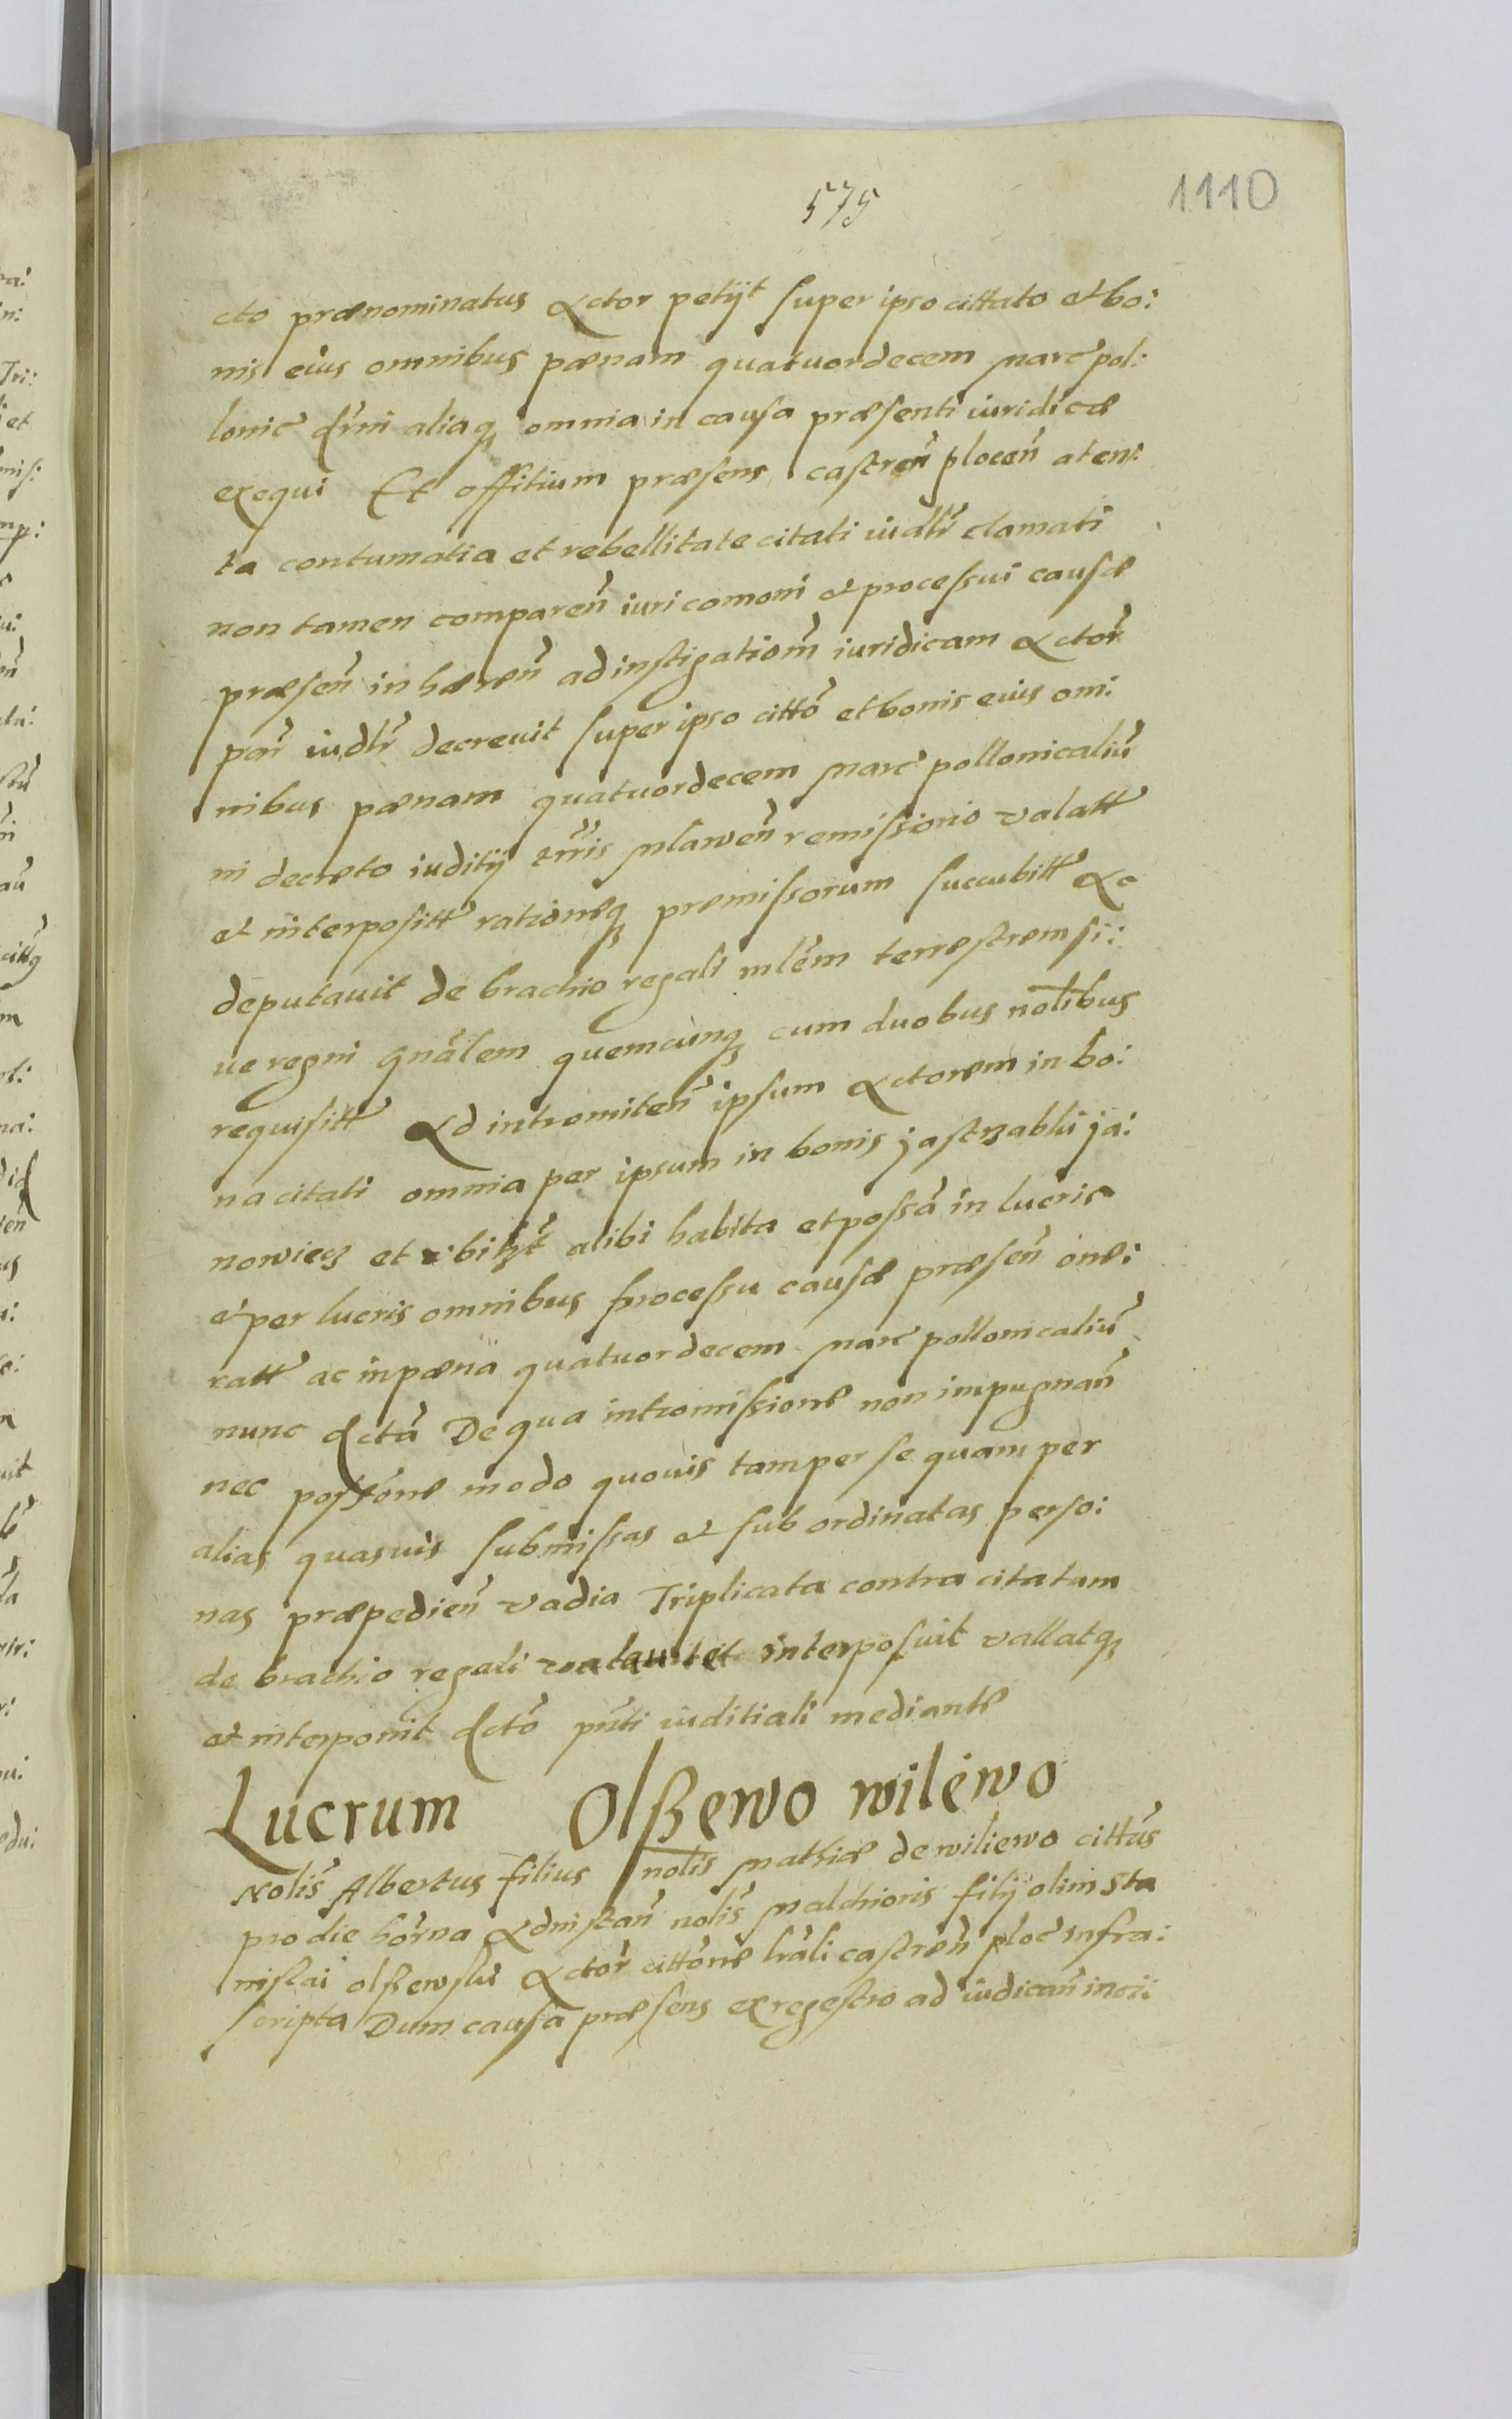 575
1110
cto prænominatus Actor petijt super ipso cittato et bo:
nis eius omnibus pænam quatuordecem marc pol:
lonic drni aliaq omnia in causa præsenti iuridicæ
exequi Et offitium præsens castren plocen aten:
ta contumatia et rebellitate citati iudlr clamati
non tamen comparen iuri comoni et processui causæ
præsen in hæren ad instigationm iuridicam Actor
par iudlr decreuit super ipso citto et bonis eius om:
nibus pænam quatuordecem marc pollonicaliu
ni decreto iuditij trris mlawen remissorio valatt
et interpositt rationeq premissorum succubitt &c
deputauit de brachio regali mlem terrestrem si:
ue regni gnalem quemcunq cum duobus nolibus
requisitt Ad intromiten ipsum Actorem in bo:
na citati omnia per ipsum in bonis jastrzabki ja:
nowieg et vbilzt alibi habita et possa in lucris
et per lucris omnibus processu causæ præsen one:
ratt ac in pæna quatuordecem marc pollonicaliu
nunc dcta De qua intromissione non impugnan
nec possone modo quouis tam per se quam per
alias quasuis submissas et sub ordinatas perso:
nas præpedien vadia Triplicata contra citatum
de brachio regali interposuit vallatq
et interponit dcto pnti iuditiali mediante
Lucrum Olßewo wilewo
Nolis Albertus filius nolis Mathiæ de wiliewo cittus
pro die horna Ad instan nolis Malchioris filij olim sta
nislai olßewski Actor cittone lrali castren ploc infra:
scripta Dum causa præsens ex regestro ad iudican inci: